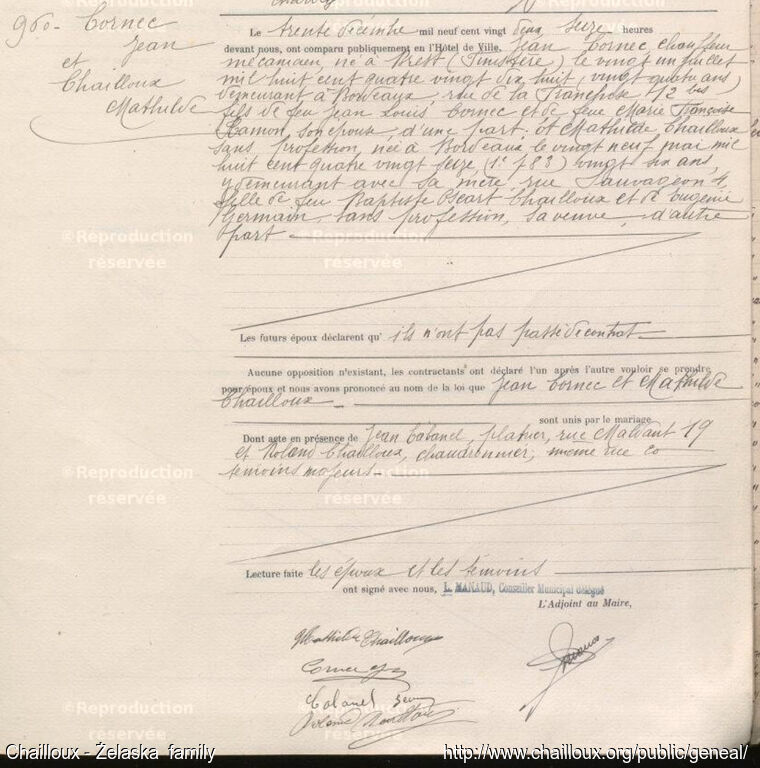 960 - Cornec
Jean
et
Chailloux
Mathilde
Le trente décembre mil neuf cent vingt deux, seize heures
devant nous, ont comparu publiquement en l'Hôtel de Ville, Jean Cornec chauffeur
mécanicien, né à Brest (Finistère) le vingt un juillet
mil huit cent quatre vingt dix huit, vingt quatre ans,
demeurant à Bordeaux, rue de la 12 bis
fils de feu Jean Louis Cornec et de feue Marie Françoise
Ramon, son épouse, d'une part, et Mathilde Chailloux
sans profession, née à Bordeaux le vingt neuf mai mil
huit cent quatre vingt seize (1° 783) vingt six ans,
y demeurant avec sa mère, rue Sauvageon 4,
fille de feu Baptiste Oscart Chailloux et de Eugénie
Germain, sans profession, sa veuve, d'autre
part -
©Reproduction
réservée
©Reproduction
réservée
©Reproduction
réservée
Les futurs époux déclarent qu' ils n'ont pas passé de contrat
Aucune opposition n'existant, les contractants ont déclaré l'un après l'autre vouloir se prendre
pour époux et nous avons prononcé au nom de la loi que Jean Cornec et Mathilde
Chailloux -
sont unis par le mariage
Dont acte en présence de Jean Cabanel, platrier, rue Malvant 19
et Roland Chailloux, chaudronnier, même rue 60
témoins majeurs
©Reproduction
réservée
©Reproduction
réservée
©Reproduction
réservée
Lecture faite les époux et les témoins
ont signé avec nous, L. MANAUD, Conseiller Municipal délégué
L'Adjoint au Maire,
Mathilde Chailloux
Cornec
©Reproduction
réservée
©Reproduction
réservée
©Reproduction
réservée
Chailloux - Żelaska family
http://www.chailloux.org/public/geneal/